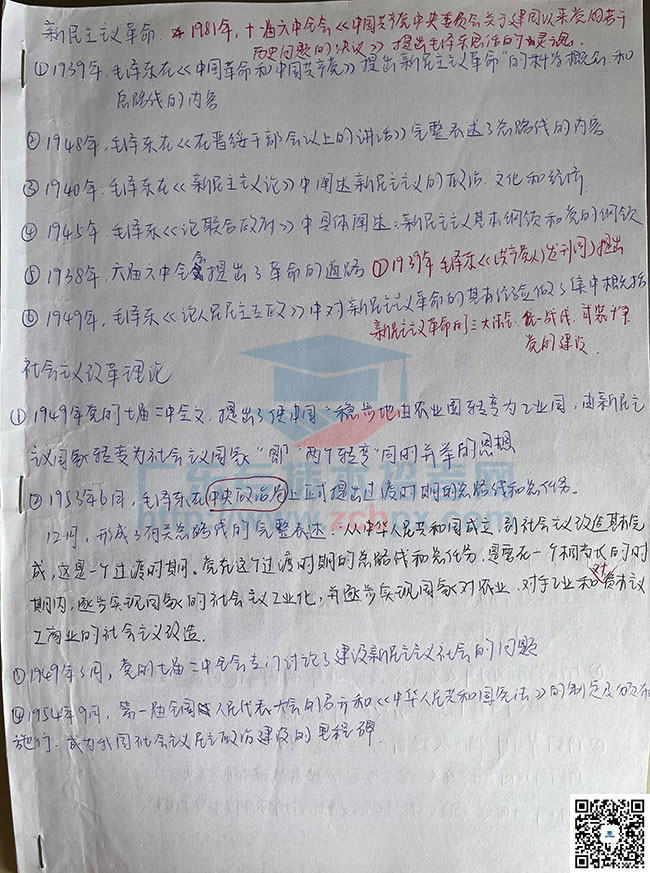 新民主主义革命. * 1981年,十一届六中全会《中国共产党中央委员会关于建国以来党的若干
历史问题的决议》提出毛泽东思活的灵魂.
① 1939年,毛泽东在《中国革命和中国共产党》提出新民主主义革命"的科学概念和
总路线的内容
② 1948年,毛泽东在《在晋绥干部会议上的讲话》完整表述了总路线的内容
③ 1940年,毛泽东在《新民主主义论》中阐述新民主主义的政治.文化和经济
④ 1945年,毛泽东《论联合政府》中具体阐述:新民主主义基本纲领和党的纲领
⑤ 1938年,六届六中全会提出了革命的道路 ⑦1939年毛泽东《〈共产党人〉发刊词》提出
⑥ 1949年,毛泽东《论人民民主专政》中对新民主主义革命的具体经验做了集中概括
新民主主义革命的三大法宝.统一战线.武装斗争
党的建设.
社会主义改革理论
① 1949年党的七届二中全文.提出了使中国"稳步地由农业国转变为工业国,由新民主
主义国家转变为社会主义国家"即"两个转变"同时并举的思想
② 1953年6月,毛泽东在中央政治局上正式提出过渡时期的总路线和总任务.
12月,形成了有关总路线的完整表述:从中华人民共和国成立,到社会主义改造基本完
成,这是一个过渡时期.党在这个过渡时期的总路线和总任务,是要在一个相当长的时
期内,逐步实现国家的社会主义工业化,并逐步实现国家对农业.对手工业和对资本主义
工商业的社会主义改造.
① 1949年3月,党的七届二中全会专门讨论了建设新民主主义社会的问题
④ 1954年9月,第一届全国人民代表大会的召开和《中华人民共和国宪法》的制定及颁布
施行.成为我国社会主义民主政治建设的里程碑.
www.zcbnx.com